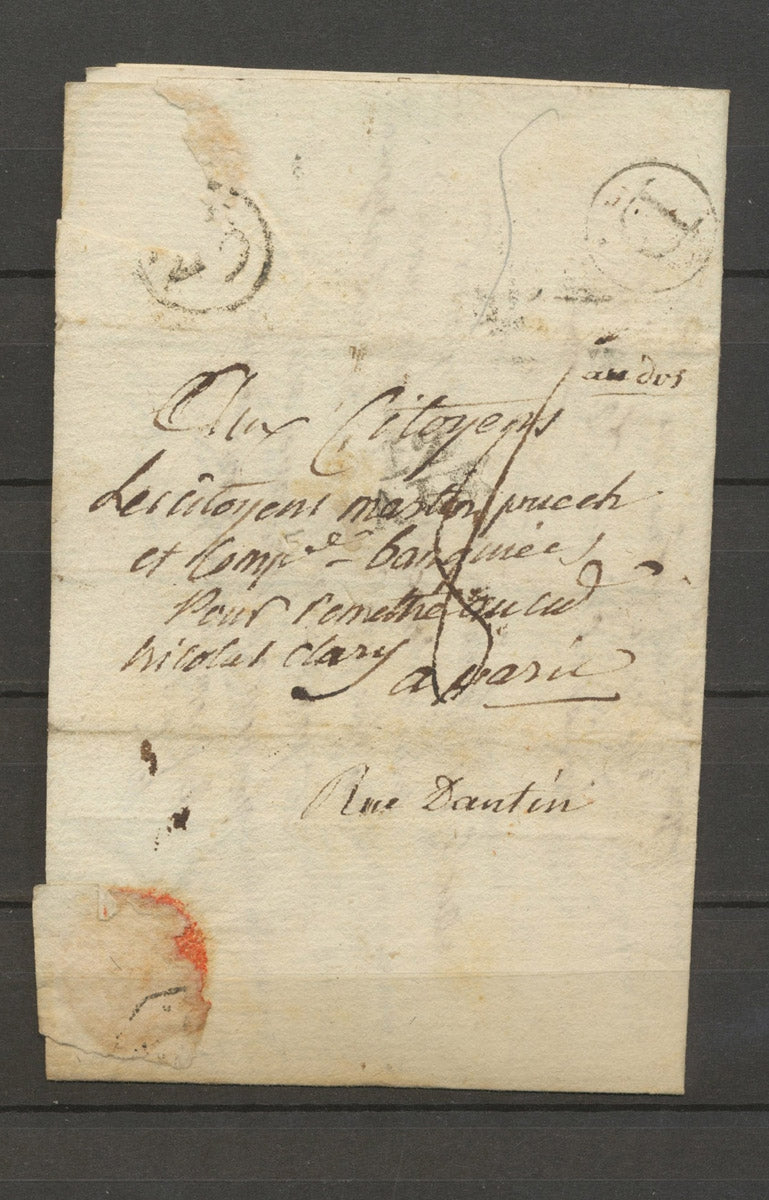 au dos
Aux Citoyens
Les citoyens martin puech
et Comp
Pour remettre au
nicolas Clary
a paris
Rue Dantin